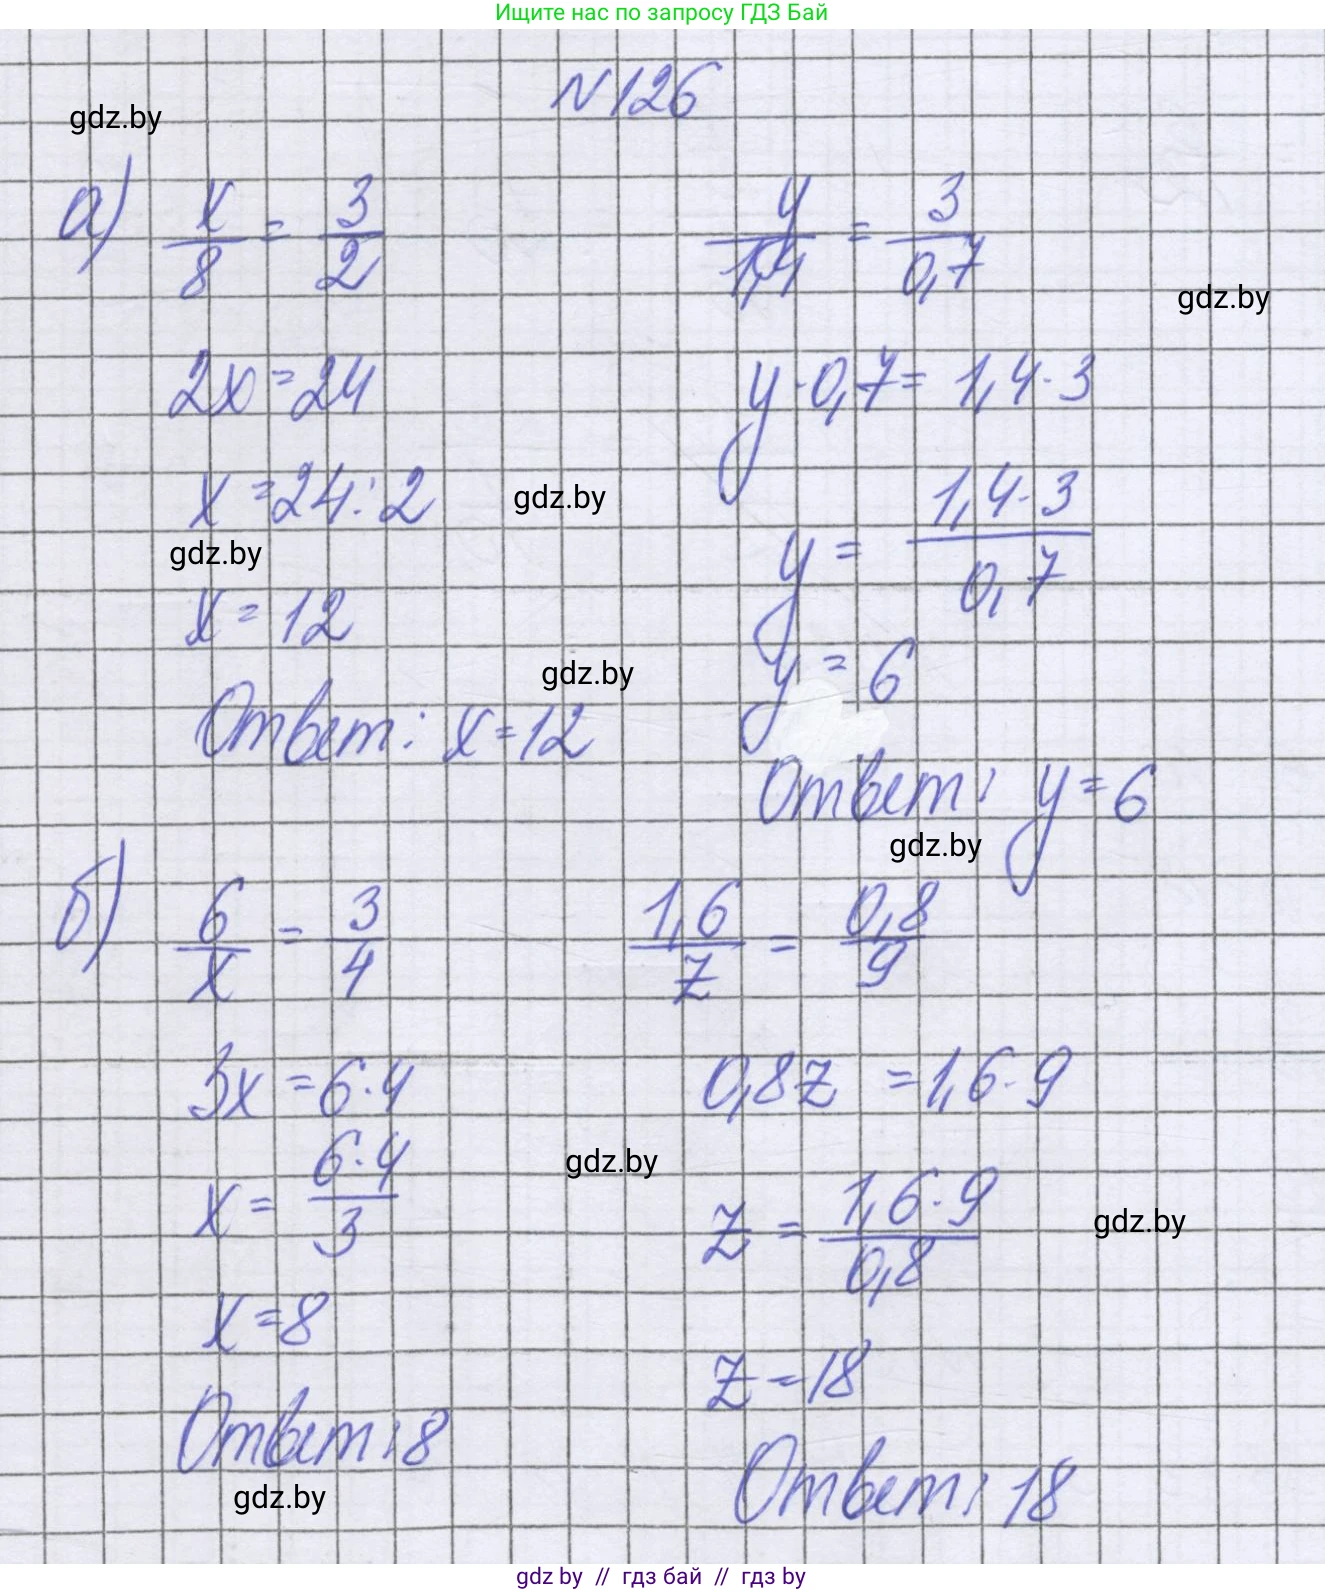 Ищите нас по запросу ГДЗ Бай
N126
gdz.by
а) x/8 = 3/2
2x = 24
x = 24 : 2
x = 12
Ответ: x = 12
y/1,4 = 3/0,7
y · 0,7 = 1,4 · 3
y = 1,4 · 3/0,7
y = 6
Ответ: y = 6
gdz.by
gdz.by
gdz.by
gdz.by
gdz.by
б) 6/x = 3/4
3x = 6 · 4
x = 6 · 4/3
x = 8
Ответ: 8
1,6/z = 0,8/9
0,8z = 1,6 · 9
z = 1,6 · 9/0,8
z = 18
Ответ: 18
gdz.by
gdz.by
gdz.by
gdz by // гдз бай // гдз by